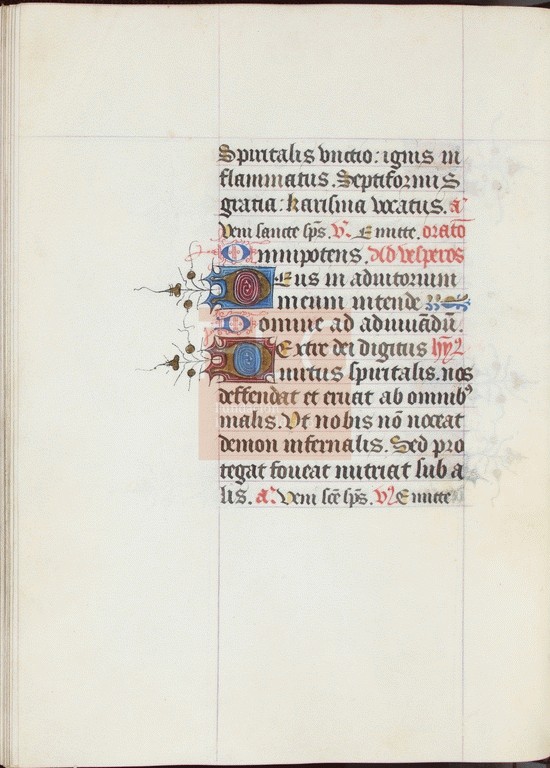 Spiritalis vnctio: ignis in
flammatus. Septiformis
gratia: karisma vocatus. a͛
Veni sancte sp̄s. v͛. Emitte. oratō
Omnipotens. Ad vesperos
Deus in adiutorium
meum intende
Domine ad adiuuādū.
Dextre dei digitus hy̅
uirtus spiritalis. nos
deffendat et eruat ab omnib⁹
malis. Vt nobis nō noceat
demon infernalis. Sed pro
tegat foueat nutriat sub a
lis. a͛. Veni scē sp̄s. v͛. Emitte